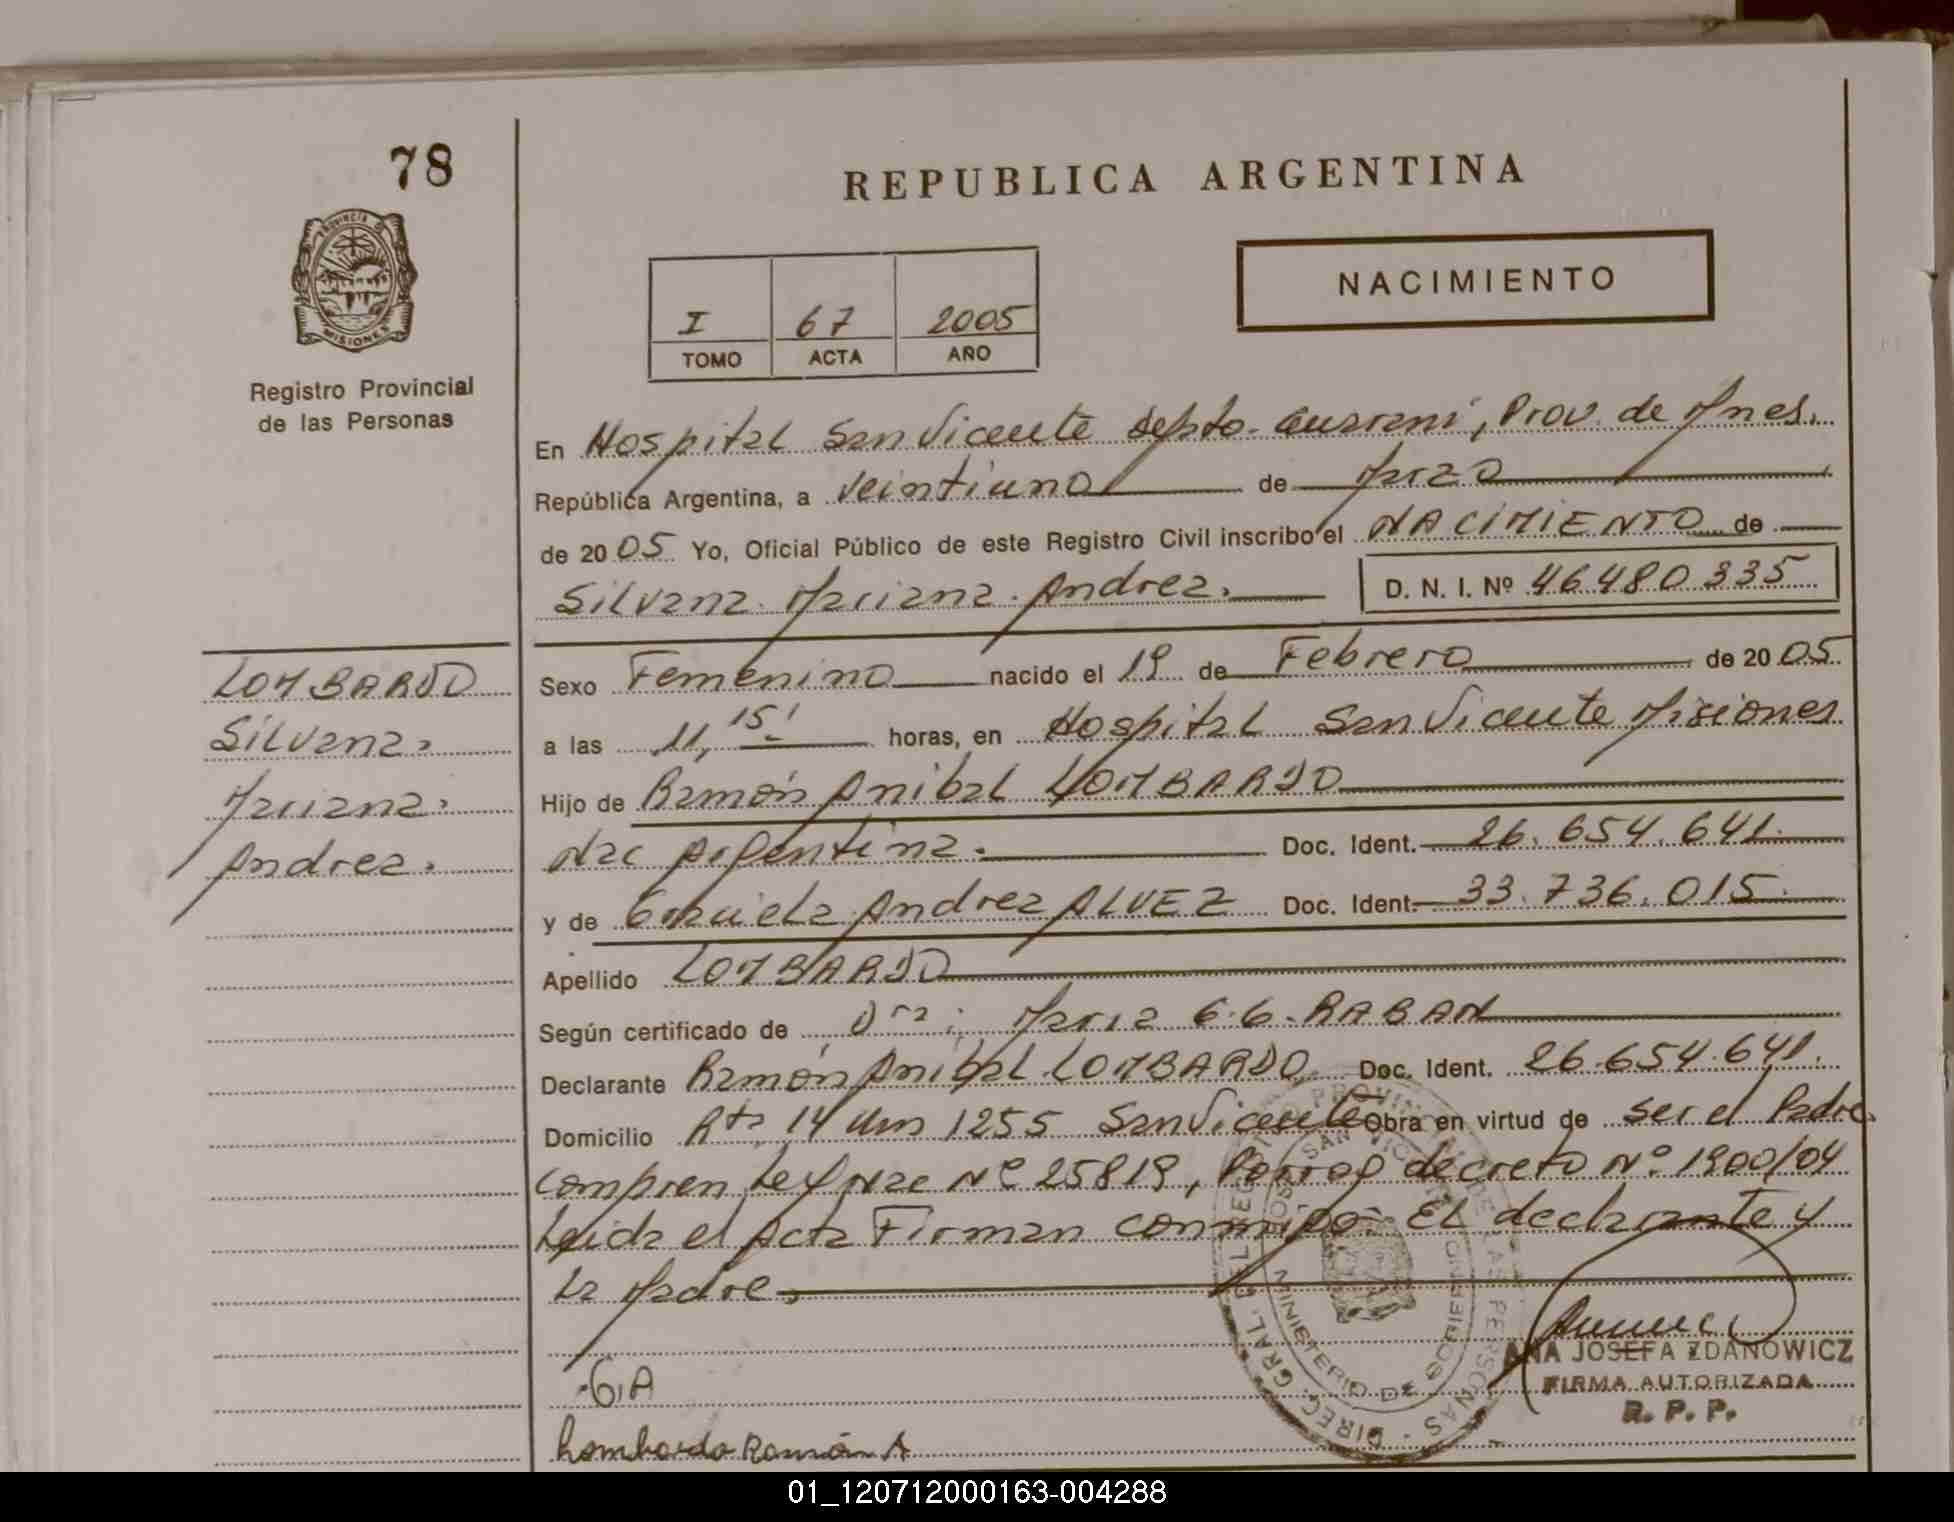 78
REPUBLICA ARGENTINA
PROVINCIA DE
MISIONES
Registro Provincial
de las Personas
NACIMIENTO
I 67 2005
TOMO ACTA AÑO
En Hospital San Vicente Depto. Guarani, Prov. de Mnes.
República Argentina, a veintiuno de Marzo
de 2005 Yo, Oficial Público de este Registro Civil inscribo el NACIMIENTO de
Silvana Mariana Andrea. D. N. I. Nº 46480335
LOMBARDO
Silvana
Mariana
Andrea.
Sexo Femenino nacido el 19 de Febrero de 2005
a las 11, 15' horas, en Hospital San Vicente Misiones
Hijo de Ramón Anibal LOMBARDO
Nac Argentina. Doc. Ident. 26.654.641.
y de Graciela Andrea ALVEZ Doc. Ident. 33.736.015.
Apellido LOMBARDO
Según certificado de Dra: Maria G.G. RABAN
Declarante Ramón Anibal LOMBARDO Doc. Ident. 26.654.641.
Domicilio Rta 14 Km 1255 San Vicente Obra en virtud de ser el Padre
Ley Nac Nº 25819, decreto Nº 1900/04
Leida el Acta Firman conmigo: El declarante y
La Madre.
G.A
Lombardo Ramón A
ANA JOSEFA ZDANOWICZ
FIRMA AUTORIZADA
R. P. P.
01_120712000163-004288